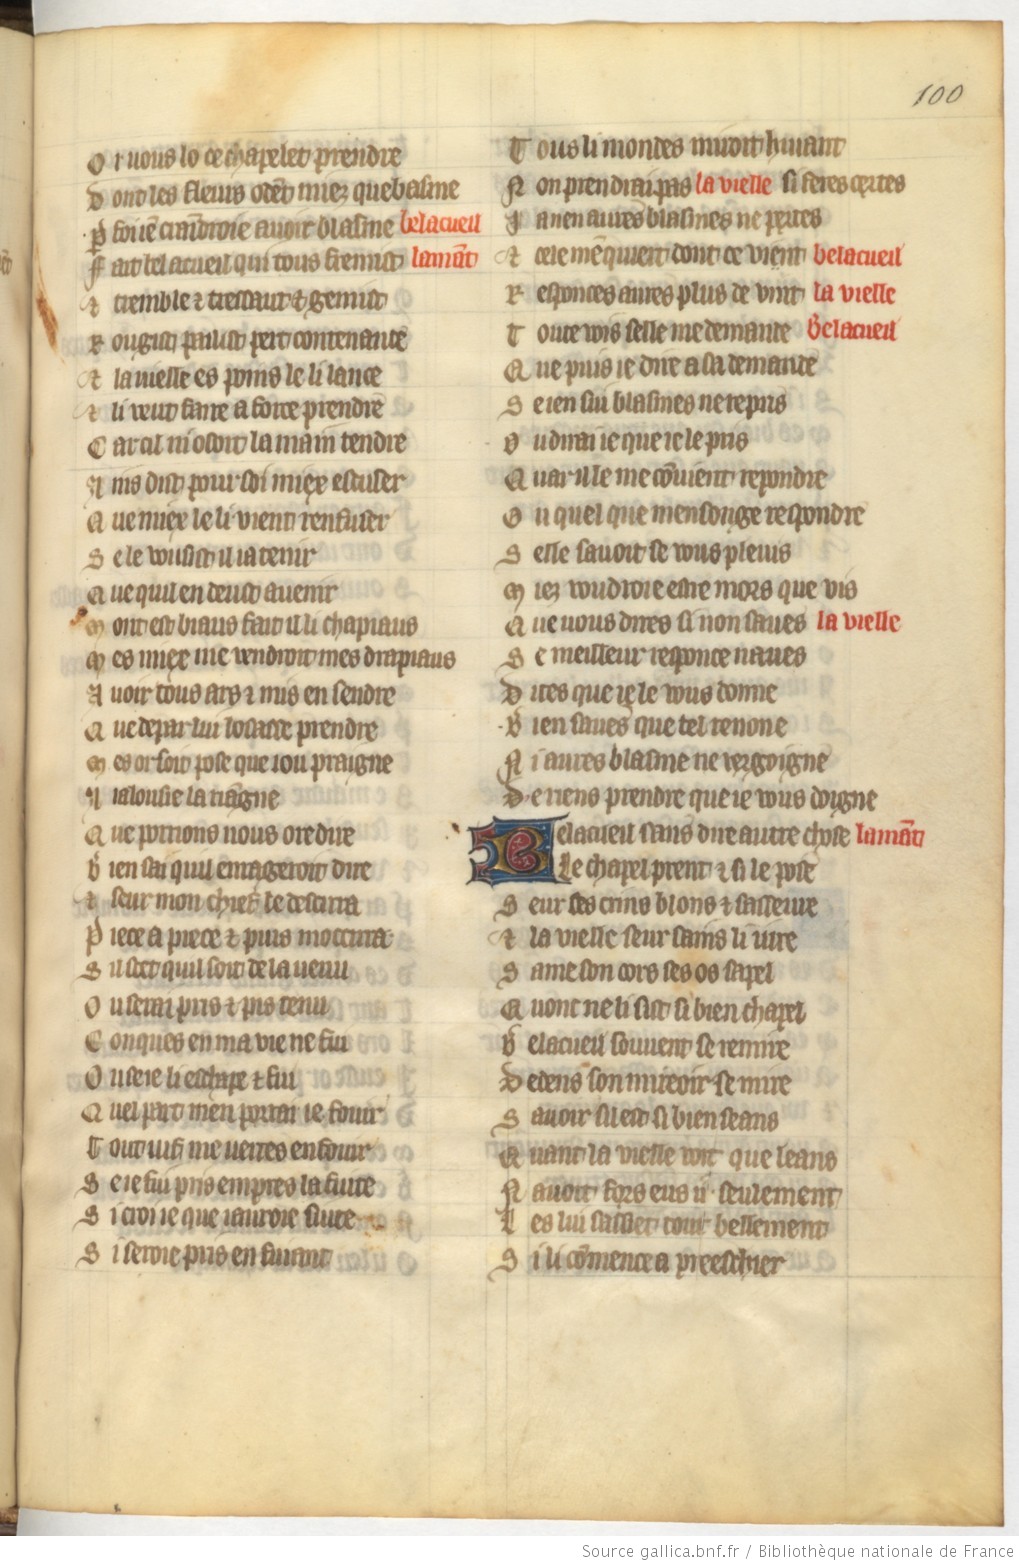 100
O r vous lo ce chapelet prendre
D ont les fleurs oleēt miex que basme
P foi iē craindroie avoir blasme belacueil
F ait bel acueil qui tous fremist lamāt
et tremble et tressaut et gemist
R ougist palist pert contenance
et la vielle es poins le li lance
et li veut faire a force prendre
C ar cil ni osoit la main tendre
A ins dist pour soi miex escuser
Q ue miex le li vient renfuser
S e le vousist il ia tenir
Q ue quil en deust avenir
M out est biaus fait il li chapiaus
M es miex me vendroit mes drapiaus
A voir tous ars et mis en sendre
Q ue de par lui losasse prendre
M es or soit pose que iou praigne
A ialousie la
Q ue porrions nous ore dire
B ien sai quil enrageroit dire
et seur mon chief le descirra
P iece a piece et puis mocirra
S il set quil soit de la venu
O u serai pris et pis tenu
C onques en ma vie ne fui
O u se ie li eschape et fui
Q uel part men porrai ie fouir
T out vif me verres enfouir
S e ie fui pris empres la fuite
S i croi ie que iauroie suite
S i seroie pris en fuiant
T ous li mondes miroit huiant
N on prendrai pas la vielle si feres certes
I a nen aures blasmes ne pertes
et cele mēquiert dont ce vient belacueil
R esponces aures plus de vint la vielle
T oute vois selle me demande Belacueil
Q ue puis ie dire a sa demande
S e ien sui blasmes ne repris
O u dirai ie que ie le pris
Q uar il le me cōvient repondre
O u quel que mensonge respondre
S elle savoit se vous plevis
M iex voudroie estre mors que vis
Q ue vous dires si non saves la vielle
S e meilleur responce naves
D ites que ie le vous donne
B ien saves que tel renone
N i aures blasme ne vergoigne
D e riens prendre que ie vous doigne
B elacueil sans dire autre chose lamāt
Le chapel prent et si le pose
S eur ses crins blons et sasseure
et la vielle seur sains li iure
S ame son cors ses os sa pel
Q uonc ne li sist si bien chapel
B elacueil souvent se remire
D edens son mireoir se mire
S avoir sil est si bien seans
Q uant la vielle voit que leans
N avoit fors eus .ii. seulement
L es lui sasset tout bellement
S i li cōmence a preeschier